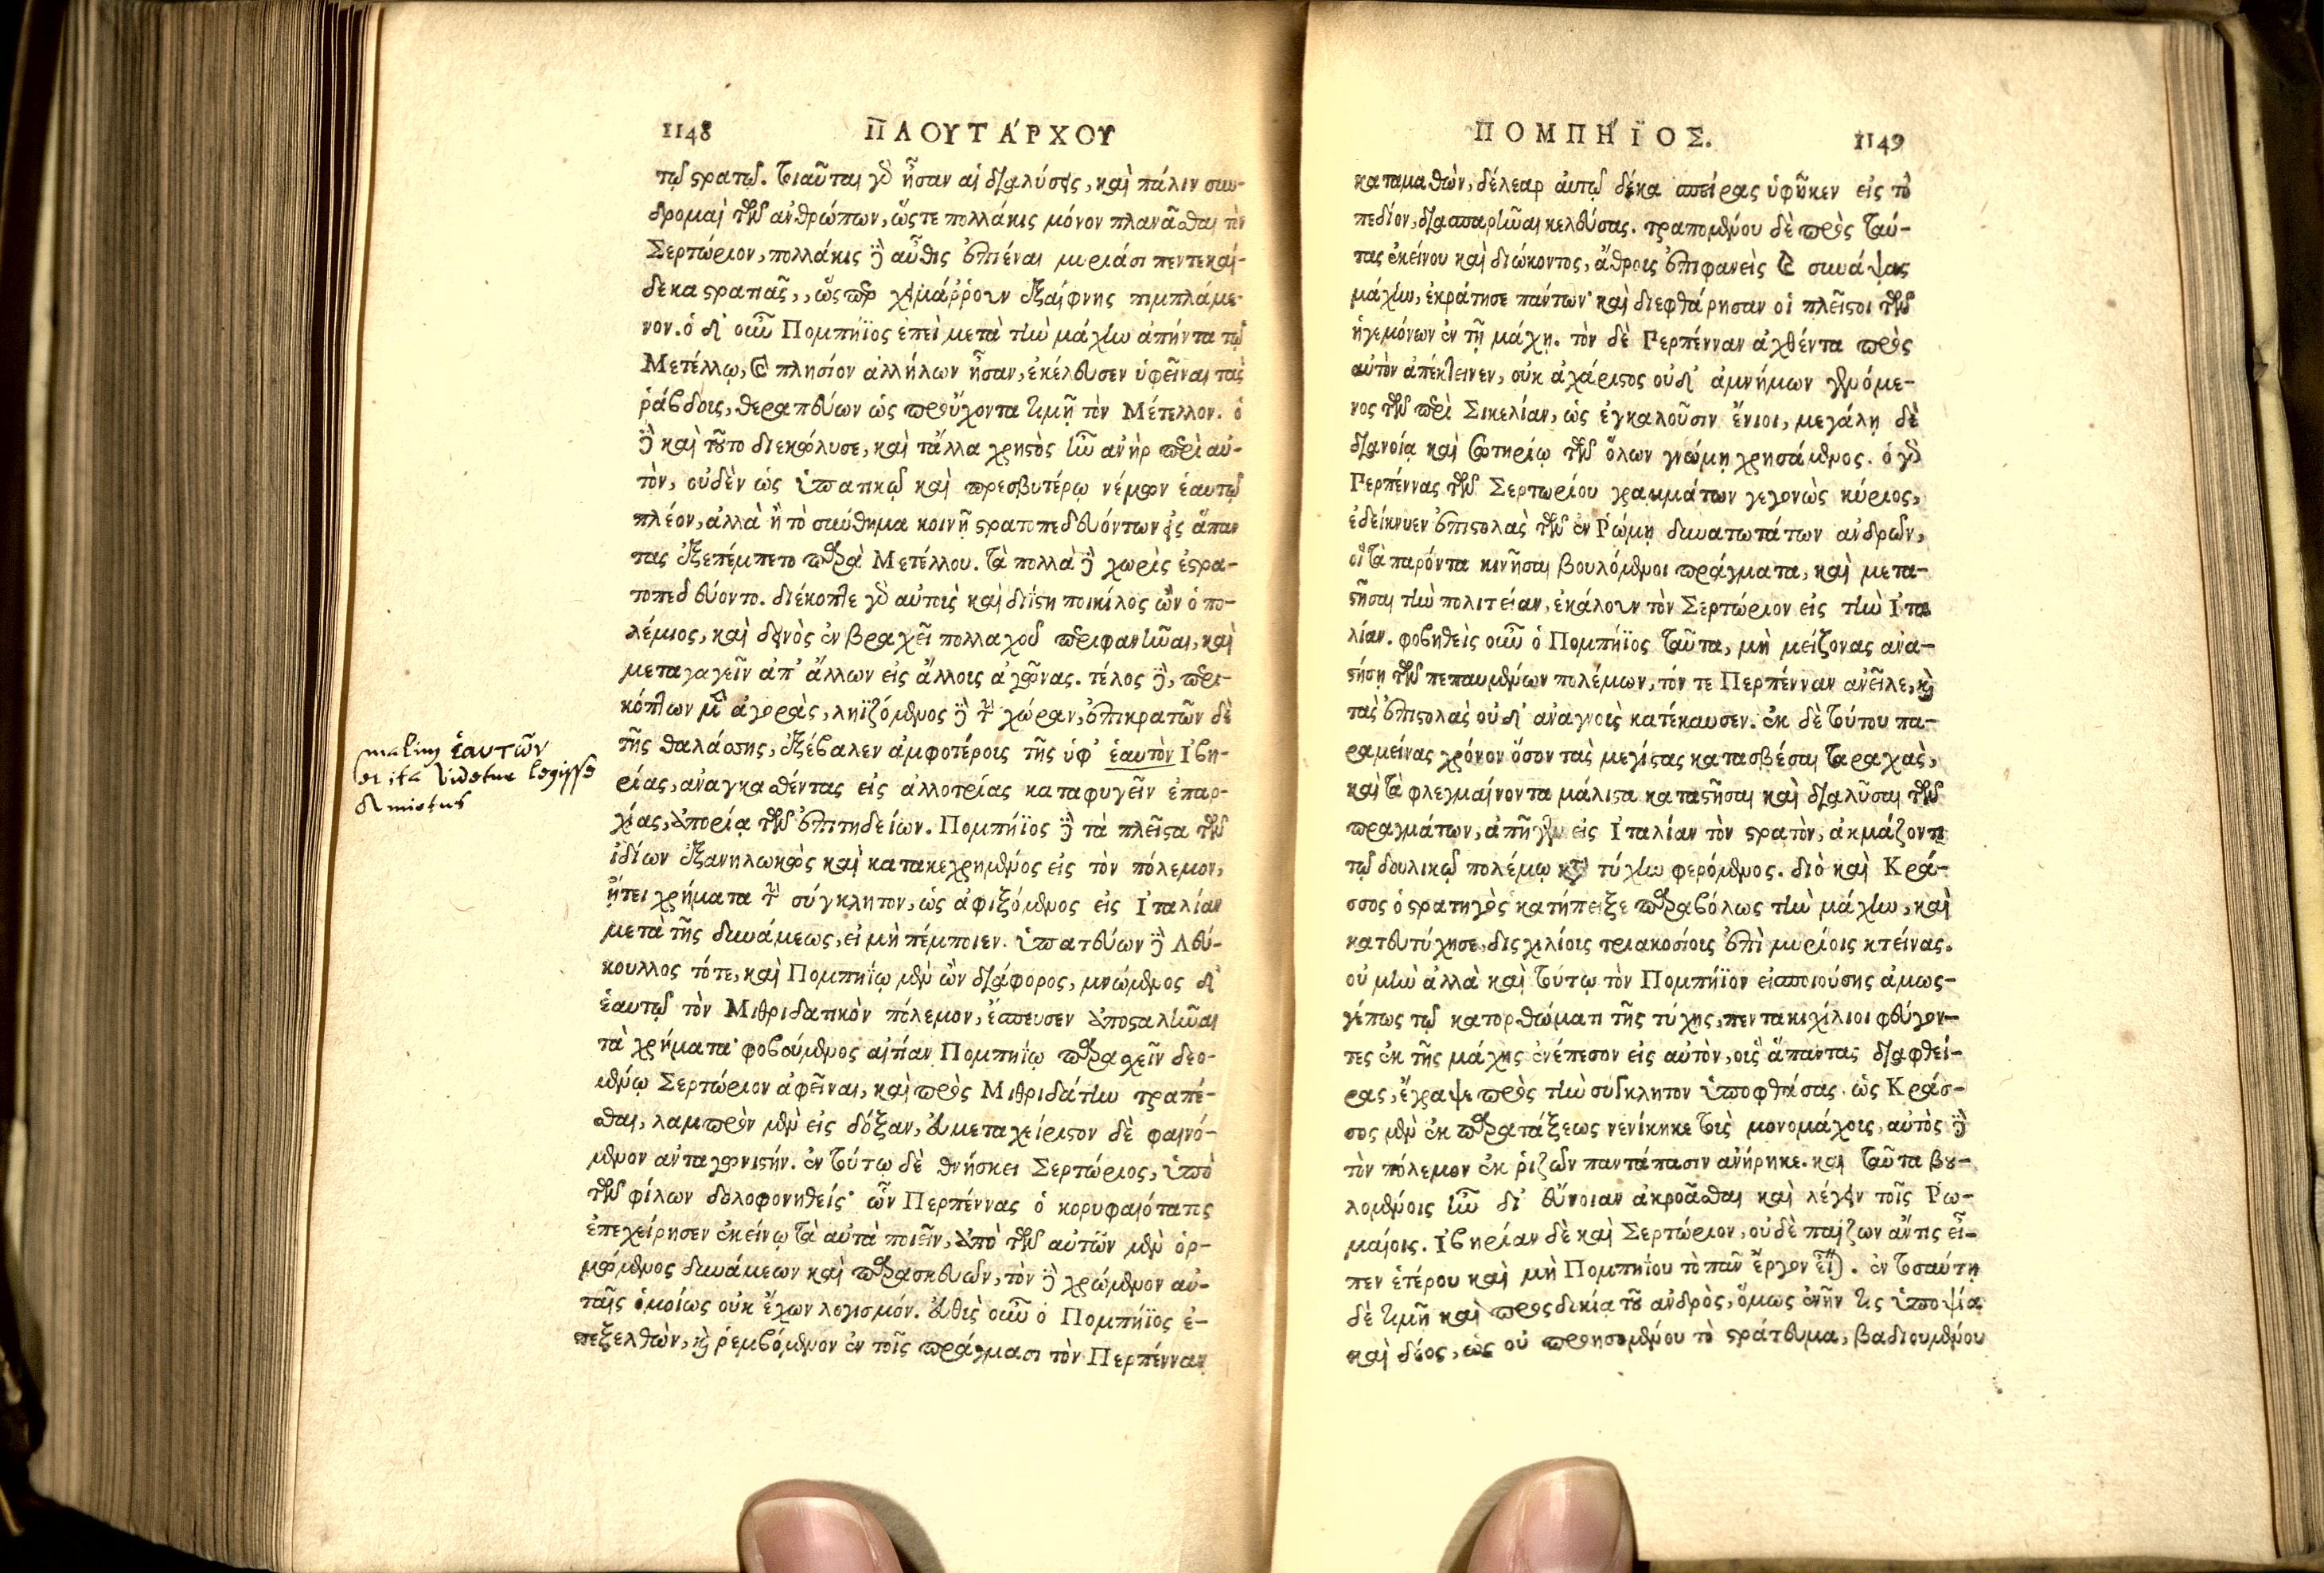 1148 ΠΛΟΥΤΆΡΧΟΥ
τῷ στρατῷ. τοιαῦται γὰρ ἦσαν αἱ διαλύσεις, καὶ πάλιν συν-
δρομαὶ τῶν ἀνθρώπων, ὥστε πολλάκις μόνον πλανᾶσθαι τὸν
Σερτώριον, πολλάκις δὲ αὖθις ἐπιέναι μυριάσι πεντεκαί-
δεκα στρατιᾶς, ὥσπερ χειμάῤῥουν ἐξαίφνης πιμπλάμε-
νον. ὁ δ' οὖν Πομπήϊος ἐπεὶ μετὰ τὴν μάχην ἀπήντα τῷ
Μετέλλῳ, καὶ πλησίον ἀλλήλων ἦσαν, ἐκέλευσεν ὑφεῖναι τὰς
ῥάβδους, θεραπεύων ὡς προὔχοντα τιμῇ τὸν Μέτελλον. ὁ
δὲ καὶ τοῦτο διεκώλυσε, καὶ τἄλλα χρηστὸς ἦν ἀνὴρ περὶ αὐ-
τὸν, οὐδὲν ὡς ὑπατικῷ καὶ πρεσβυτέρῳ νέμων ἑαυτῷ
πλέον, ἀλλὰ ἢ τὸ σύνθημα κοινῇ στρατοπεδευόντων εἰς ἅπαν
τας ἐξεπέμπετο παρὰ Μετέλλου. τὰ πολλὰ δὲ χωρὶς ἐστρα-
τοπεδεύοντο. διέκοπτε γὰρ αὐτοὺς καὶ διΐστη ποικίλος ὢν ὁ πο-
λέμιος, καὶ δεινὸς ἐν βραχεῖ πολλαχοῦ περιφανῆναι, καὶ
μεταγαγεῖν ἀπ' ἄλλων εἰς ἄλλους ἀγῶνας. τέλος δὲ, περι-
κόπτων μὲν ἀγορὰς, ληϊζόμενος δὲ τὴν χώραν, ἐπικρατῶν δὲ
τῆς θαλάσσης, ἐξέβαλεν ἀμφοτέρους τῆς ὑφ' ἑαυτὸν Ἰβη-
ρίας, ἀναγκασθέντας εἰς ἀλλοτρίας καταφυγεῖν ἐπαρ-
χίας, ἀπορίᾳ τῶν ἐπιτηδείων. Πομπήϊος δὲ τὰ πλεῖστα τῶν
ἰδίων ἐξανηλωκὼς καὶ κατακεχρημένος εἰς τὸν πόλεμον,
ᾔτει χρήματα τὴν σύγκλητον, ὡς ἀφιξόμενος εἰς Ἰταλίαν
μετὰ τῆς δυνάμεως, εἰ μὴ πέμποιεν. ὑπατεύων δὲ Λεύ-
κουλλος τότε, καὶ Πομπηΐῳ μὲν ὢν διάφορος, μνώμενος δ'
ἑαυτῷ τὸν Μιθριδατικὸν πόλεμον, ἔσπευσεν ἀποσταλῆναι
τὰ χρήματα· φοβούμενος αἰτίαν Πομπηΐῳ παρασχεῖν δεο-
μένῳ Σερτώριον ἀφεῖναι, καὶ πρὸς Μιθριδάτην τραπέ-
σθαι, λαμπρὸν μὲν εἰς δόξαν, εὐμεταχείριστον δὲ φαινό-
μενον ἀνταγωνιστήν. ἐν τούτῳ δὲ θνήσκει Σερτώριος, ὑπὸ
τῶν φίλων δολοφονηθείς· ὧν Περπέννας ὁ κορυφαιότατος
ἐπεχείρησεν ἐκείνῳ τὰ αὐτὰ ποιεῖν, ἀπὸ τῶν αὐτῶν μὲν ὁρ-
μώμενος δυνάμεων καὶ παρασκευῶν, τὸν δὲ χρώμενον αὐ-
ταῖς ὁμοίως οὐκ ἔχων λογισμόν. εὐθὺς οὖν ὁ Πομπήϊος ἐ-
πεξελθὼν, καὶ ῥεμβόμενον ἐν τοῖς πράγμασι τὸν Περπένναν
malim ἑαυτῶν
et ita videtur legisse
Amiotus
ΠΟΜΠΉΪΟΣ. 1149
καταμαθὼν, δέλεαρ αὐτῷ δέκα σπείρας ὑφῆκεν εἰς τὸ
πεδίον, διασπαρῆναι κελεύσας. τραπομένου δὲ πρὸς ταύ-
τας ἐκείνου καὶ διώκοντος, ἄθρους ἐπιφανεὶς καὶ συνάψας
μάχην, ἐκράτησε πάντων· καὶ διεφθάρησαν οἱ πλεῖστοι τῶν
ἡγεμόνων ἐν τῇ μάχῃ. τὸν δὲ Γερπένναν ἀχθέντα πρὸς
αὐτὸν ἀπέκτεινεν, οὐκ ἀχάριστος οὐδ' ἀμνήμων γενόμε-
νος τῶν περὶ Σικελίαν, ὡς ἐγκαλοῦσιν ἔνιοι, μεγάλῃ δὲ
διανοίᾳ καὶ σωτηρίῳ τῶν ὅλων γνώμῃ χρησάμενος. ὁ γὰρ
Γερπέννας τῶν Σερτωρίου γραμμάτων γεγονὼς κύριος,
ἐδείκνυεν ἐπιστολὰς τῶν ἐν Ῥώμῃ δυνατωτάτων ἀνδρῶν,
οἳ τὰ παρόντα κινῆσαι βουλόμενοι πράγματα, καὶ μετα-
στῆσαι τὴν πολιτείαν, ἐκάλουν τὸν Σερτώριον εἰς τὴν Ἰτα
λίαν. φοβηθεὶς οὖν ὁ Πομπήϊος ταῦτα, μὴ μείζονας ἀνα-
στήσῃ τῶν πεπαυμένων πολέμων, τόν τε Περπένναν ἀνεῖλε, καὶ
τὰς ἐπιστολὰς οὐδ' ἀναγνοὺς κατέκαυσεν. ἐκ δὲ τούτου πα-
ραμείνας χρόνον ὅσον τὰς μεγίστας κατασβέσαι ταραχὰς,
καὶ τὰ φλεγμαίνοντα μάλιστα καταστῆσαι καὶ διαλῦσαι τῶν
πραγμάτων, ἀπῆγεν εἰς Ἰταλίαν τὸν στρατὸν, ἀκμάζοντι
τῷ δουλικῷ πολέμῳ κατὰ τύχην φερόμενος. διὸ καὶ Κρά-
σσος ὁ στρατηγὸς κατήπειξε παραβόλως τὴν μάχην, καὶ
κατευτύχησε, δισχιλίους τριακοσίους ἐπὶ μυρίοις κτείνας.
οὐ μὴν ἀλλὰ καὶ τούτῳ τὸν Πομπήϊον εἰσποιούσης ἁμωσ-
γέπως τῷ κατορθώματι τῆς τύχης, πεντακισχίλιοι φεύγον-
τες ἐκ τῆς μάχης ἐνέπεσον εἰς αὐτὸν, οὓς ἅπαντας διαφθεί-
ρας, ἔγραψε πρὸς τὴν σύγκλητον ὑποφθάσας. ὡς Κράσ-
σος μὲν ἐκ παρατάξεως νενίκηκε τοὺς μονομάχους, αὐτὸς δὲ
τὸν πόλεμον ἐκ ῥιζῶν παντάπασιν ἀνῄρηκε. καὶ ταῦτα βου-
λομένοις ἦν δι' εὔνοιαν ἀκροᾶσθαι καὶ λέγειν τοῖς Ῥω-
μαίοις. Ἰβηρίαν δὲ καὶ Σερτώριον, οὐδὲ παίζων ἄν τις εἶ-
πεν ἑτέρου καὶ μὴ Πομπηΐου τὸ πᾶν ἔργον εἶναι. ἐν τοσαύτῃ
δὲ τιμῇ καὶ προσδοκίᾳ τοῦ ἀνδρὸς, ὅμως ἐνῆν τις ὑποψία
καὶ δέος, ὡς οὐ προησομένου τὸ στράτευμα, βαδιουμένου